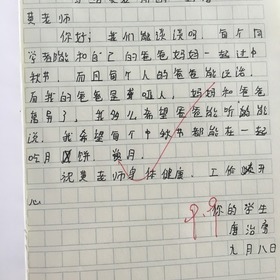 莫老师
你好！我们能谈谈吗，每个同
学都能和自己的爸爸妈妈一起过中
秋节，而且每个人的爸爸能
而我的爸爸是　　，妈妈和爸爸
离异了，我多么希望爸爸能听的能
说，我希望每个中秋节都能在一起
吃月饼　赏月。
祝莫老师身体健康，工作　开
心
你的学生
唐治
九月八日